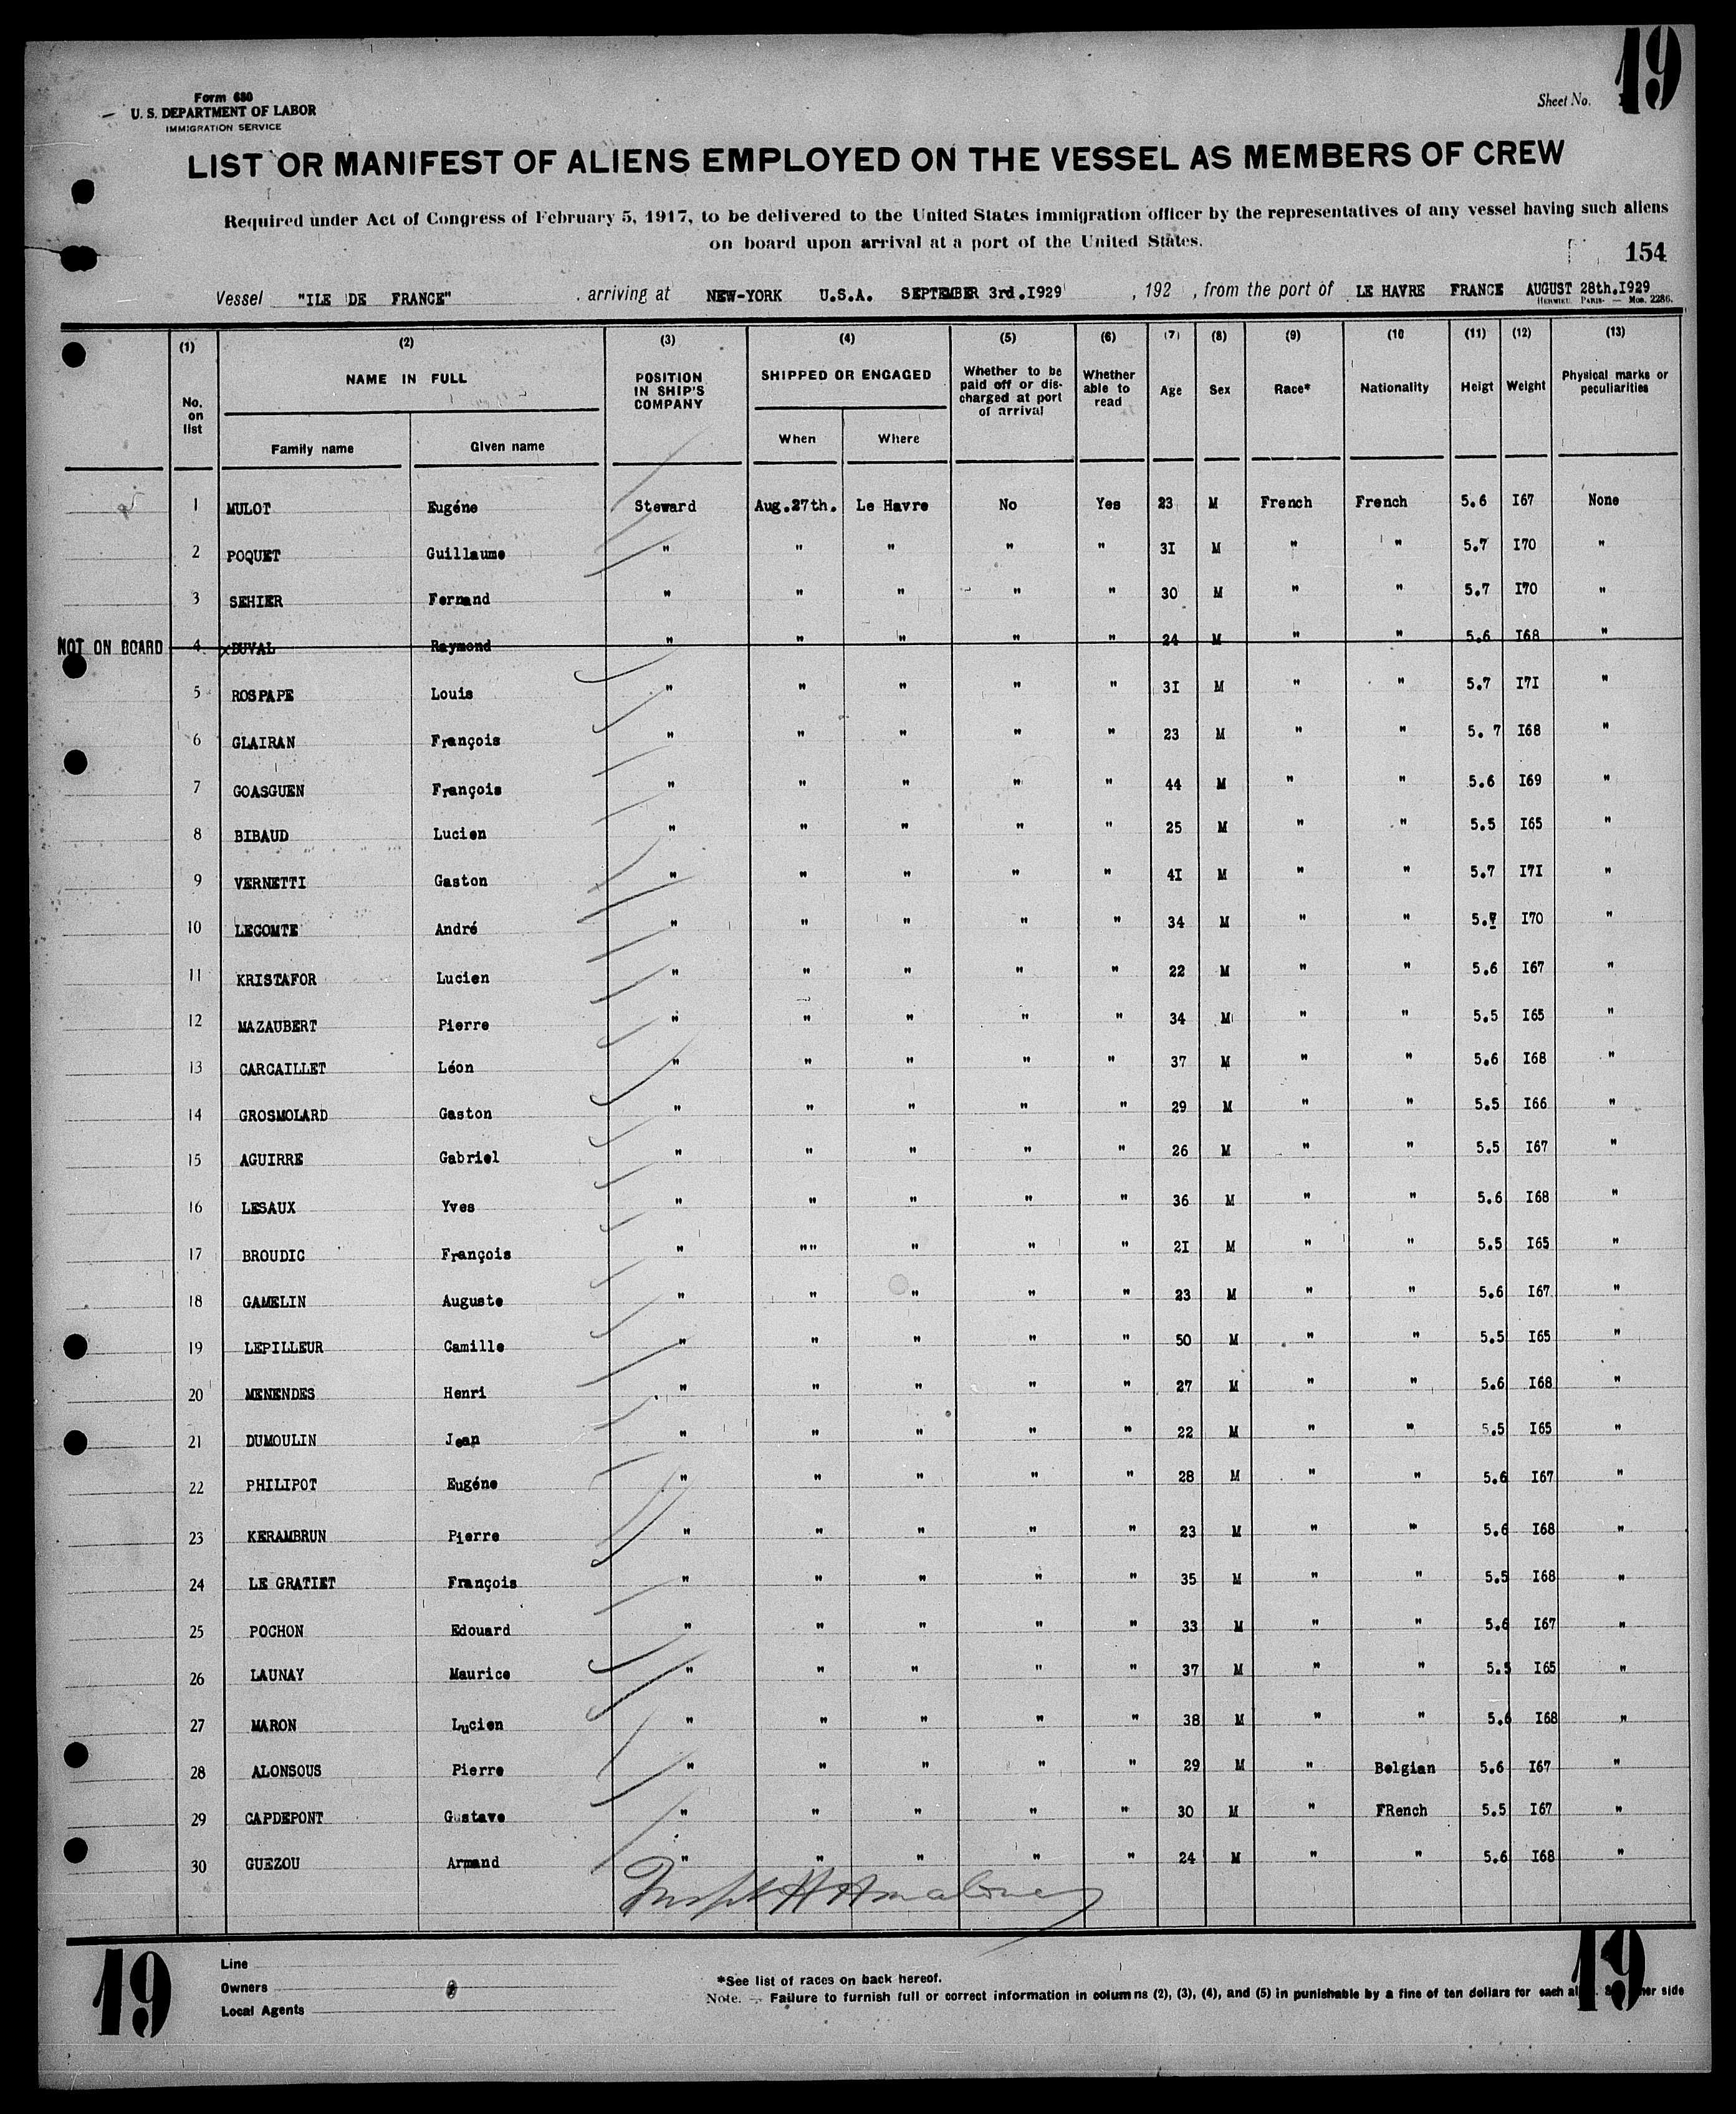 19
Form 680
U. S. DEPARTMENT OF LABOR
IMMIGRATION SERVICE
Sheet No.
LIST OR MANIFEST OF ALIENS EMPLOYED ON THE VESSEL AS MEMBERS OF CREW
Required under Act of Congress of February 5, 1917, to be delivered to the United States immigration officer by the representatives of any vessel having such aliens
on board upon arrival at a port of the United States.
154
Vessel "ILE DE FRANCE" , arriving at NEW-YORK U.S.A. SEPTEMBER 3rd.I929 , 192 , from the port of LE HAVRE FRANCE AUGUST 28th.I929
PARIS — Mod. 2286.
(1) (2) (3) (4) (5) (6) (7) (8) (9) (10 (11) (12) (13)
No. on list NAME IN FULL POSITION IN SHIP'S COMPANY SHIPPED OR ENGAGED Whether to be paid off or dis-charged at port of arrival Whether able to read Age Sex Race* Nationality Heigt Weight Physical marks or peculiarities
Family name Given name When Where
1 MULOT Eugéne Steward Aug.27th. Le Havre No Yes 23 M French French 5.6 I67 None
2 POQUET Guillaume " " " " " 3I M " " 5.7 I70 "
3 SEHIER Fernand " " " " " 30 M " " 5.7 I70 "
NOT ON BOARD 4 xDUVAL Raymond " " " " " 24 M " " 5.6 I68 "
5 ROSPAPE Louis " " " " " 3I M " " 5.7 I7I "
6 GLAIRAN François " " " " " 23 M " " 5. 7 I68 "
7 GOASGUEN François " " " " " 44 M " " 5.6 I69 "
8 BIBAUD Lucien " " " " " 25 M " " 5.5 I65 "
9 VERNETTI Gaston " " " " " 4I M " " 5.7 I7I "
10 LECOMTE André " " " " " 34 M " " 5.7 I70 "
11 KRISTAFOR Lucien " " " " " 22 M " " 5.6 I67 "
12 MAZAUBERT Pierre " " " " " 34 M " " 5.5 I65 "
13 CARCAILLET Léon " " " " " 37 M " " 5.6 I68 "
14 GROSMOLARD Gaston " " " " " 29 M " " 5.5 I66 "
15 AGUIRRE Gabriel " " " " " 26 M " " 5.5 I67 "
16 LESAUX Yves " " " " " 36 M " " 5.6 I68 "
17 BROUDIC François " "" " " " 2I M " " 5.5 I65 "
18 GAMELIN Auguste " " " " " 23 M " " 5.6 I67 "
19 LEPILLEUR Camille " " " " " 50 M " " 5.5 I65 "
20 MENENDES Henri " " " " " 27 M " " 5.6 I68 "
21 DUMOULIN Jean " " " " " 22 M " " 5.5 I65 "
22 PHILIPOT Eugéne " " " " " 28 M " " 5.6 I67 "
23 KERAMBRUN Pierre " " " " " 23 M " " 5.6 I68 "
24 LE GRATIET François " " " " " 35 M " " 5.5 I68 "
25 POCHON Edouard " " " " " 33 M " " 5.6 I67 "
26 LAUNAY Maurice " " " " " 37 M " " 5.5 I65 "
27 MARON Lucien " " " " " 38 M " " 5.6 I68 "
28 ALONSOUS Pierre " " " " " 29 M " Belgian 5.6 I67 "
29 CAPDEPONT Gustave " " " " " 30 M " FRench 5.5 I67 "
30 GUEZOU Armand " " " " " 24 M " " 5.6 I68 "
19
Line
Owners
Local Agents
*See list of races on back hereof.
Note. — Failure to furnish full or correct information in columns (2), (3), (4), and (5) in punishable by a fine of ten dollars for each side
19